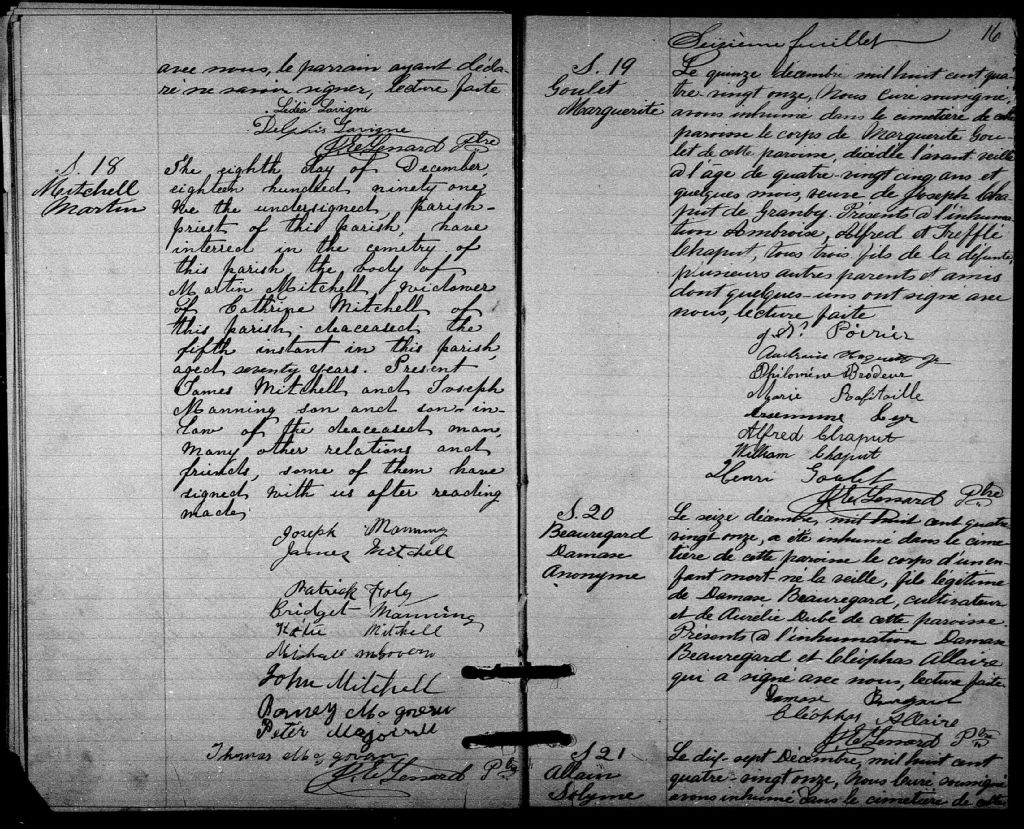 avec nous, le parrain ayant décla-
ré ne savoir signer, lecture faite
Lidia Lavigne
Delphis Lavigne
Ptre
S. 18
Mitchell
Martin
The eighth day of December,
eighteen hundred ninety one,
We the undersigned, parish-
priest of this parish, have
interred in the cemetry of
this parish the body of
Martin Mitchell, widower
of Cathrine Mitchell of
this parish, deaceased the
fifth instant in this parish,
aged seventy years. Present
James Mitchell and Joseph
Manning son and son-in-
law of the deaceased man,
many other relations and
friends, some of them have
signed with us after reading
made.
Joseph Manning
James Mitchell
Patrick Foley
Bridget Manning
Katie Mitchell
John Mitchell
Peter
Thomas
16
Seizième feuillet
S. 19
Goulet
Marguerite
Le quinze decembre mil huit cent qua-
tre-vingt onze, Nous Curé soussigné,
avons inhumé dans le cimetière de cette
paroisse le corps de Marguerite Gou-
let de cette paroisse, décédée l'avant veille
à l'âge de quatre-vingt cinq ans et
quelques mois, veuve de Joseph Cha-
put de Granby. Présents à l'inhuma-
tion Ambroise, Alfred et Trefflé
Chaput, tous trois fils de la défunte,
plusieurs autres parents et amis
dont quelques-uns ont signé avec
nous, lecture faite
Poirier
Philomène Brodeur
Marie
Alfred Chaput
William Chaput
Henri Goulet
Ptre
S. 20
Beauregard
Damase
Anonyme
Le seize décembre, mil huit cent quatre
vingt onze, a été inhumé dans le cime-
tière de cette paroisse le corps d'un en-
fant mort-né la veille, fils légitime
de Damase Beauregard, cultivateur
et de Aurélie Dubé de cette paroisse.
Présents à l'inhumation Damase
Beauregard et Cléophas Allaire
qui a signé avec nous, lecture faite
Damase
Cléophas Allaire
S. 21
Allain
Solyme
Le dix-sept Décembre, mil huit cent
quatre-vingt onze, Nous Curé soussigné
avons inhumé dans le cimetière de cette